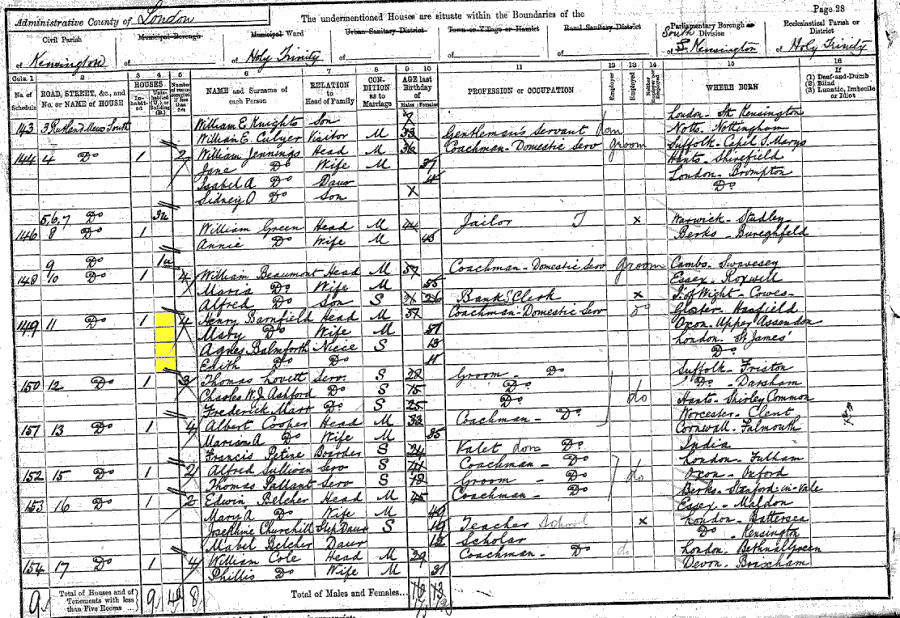 Administrative County of London
The undermentioned Houses are situate within the Boundaries of the
Page 28
Civil Parish
Municipal Borough
Municipal Ward
Urban Sanitary District
Town or Village or Hamlet
Rural Sanitary District
Parliamentary Borough or Division
Ecclesiastical Parish or District
of Kensington of of Holy Trinity of of of of South Kensington of Holy Trinity
Cols. 1 2 3 4 5 6 7 8 9 10 11 12 13 14 15 16
No. of Schedule ROAD, STREET, &c., and No. or NAME of HOUSE HOUSES NAME and Surname of each Person RELATION to Head of Family CONDITION as to Marriage AGE last Birthday of PROFESSION or OCCUPATION Employer Employed WHERE BORN (1) Deaf-and-Dumb (2) Blind (3) Lunatic, Imbecile or Idiot
Males Females
143 3 Rutland Mews South William E Knights Son 7 London - St. Kensington
William E. Culmer Visitor M 33 Gentleman's Servant Dom Notts. Nottingham
144 4 Do 1 2 William Jennings Head M 36 Coachman - Domestic Serv groom Suffolk - Capel S. Marys
Jane Do Wife M 37 Hants - Shirefield
Isabel A Do Daur London - Brompton
Sidney O Do Son Do
5, 6, 7 Do 3u
146 8 Do 1 William Green Head M 44 x Warwick - Studley
Annie Do Wife M 45 Berks - Bureghfeld
9 Do 1u
148 10 Do 1 4 William Beaumont Head M 57 Coachman - Domestic Serv groom Cambs. Swavesey
Maria Do Wife M 55 Essex - Roxwell
Alfred Do Son S 26 Bank Clerk x I. of Wight - Cowes
149 11 Do 1 4 Henry Barnfield Head M 57 Coachman - Domestic Serv Do Gloster Hasfield
Mary Do Wife M 51 Oxon. Upper Assendon
Agnes Balmforth Niece S 13 London St. James'
Edith Do Do 11 Do
150 12 Do 1 3 Thomas Lovett Serv. S 28 Groom - Do Suffolk - Friston
Charles W. J. Ashford Do S 15 Do Do - Darsham
Frederick Marr Do S 25 Do do Hants - Shirley Common
151 13 Do 1 4 Albert Cooper Head M 33 Coachman - Do Worcester - Clent
Marian A Do Wife M 35 Cornwall - Falmouth
Francis Petere Boarder S 24 Valet dom Do India
152 15 Do 1 2 Alfred Sullivan Serv S 41 Coachman - Do London - Fulham
Thomas Pallant Serv S 19 Groom - Do do Oxon - Oxford
153 16 Do 1 2 Edwin Belcher Head M 45 Coachman - Do Berks - Stanford-in-Vale
Maria Do Wife M 40 Essex - Maldon
Josephine Churchill Step Daur S 19 Teacher School x London - Battersea
Mabel Belcher Daur 12 Scholar Do - Kensington
154 17 Do 1 4 William Cole Head M 29 Coachman - Do do London - Bethnal Green
Phillis Do Wife M 31 Devon - Brixham
9 Total of Houses and of Tenements with less than Five Rooms 9 4u 8 Total of Males and Females...